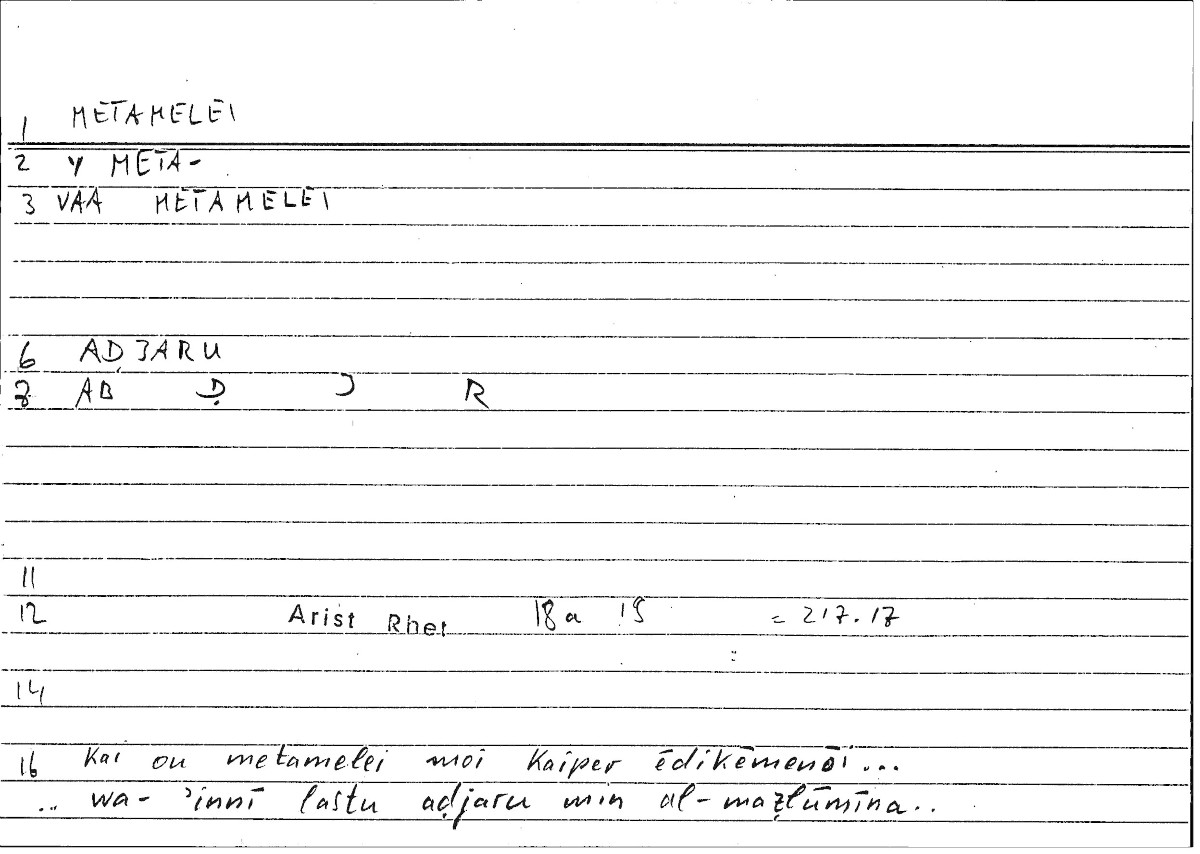 1 METAMELEI
2 γ META-
3 VAA METAMELEI
6 AḌJARU
8 AB Ḍ J R
11
12 Arist Rhet 18a 15 = 217.17
14
16 Kai ou metamelei moi kaiper ēdikēmenōi...
.. wa- 'innī lastu aḍjaru min al-maẓlūmīna..